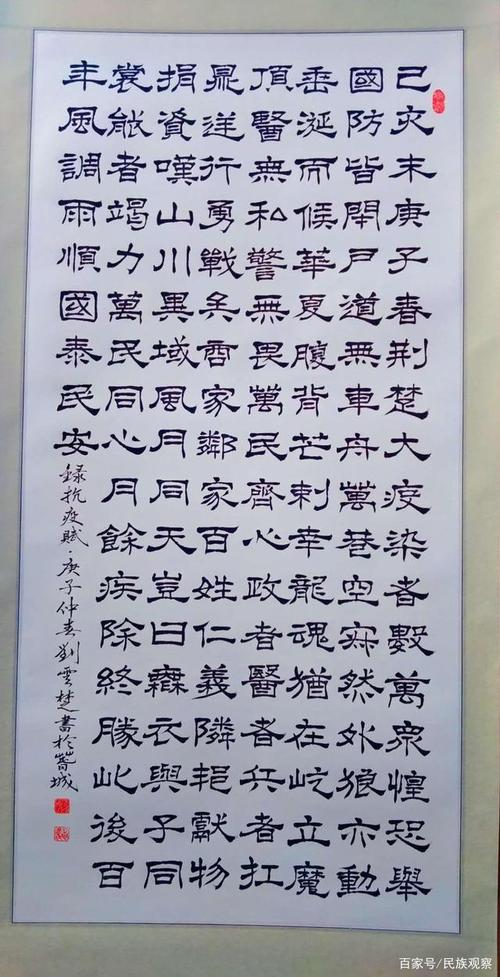 己亥末庚子春荆楚大疫染者數萬衆惶恐舉
國防皆閉戶道無車舟萬巷空寂然外狼亦動
垂涎而候華夏腹背芒刺幸龍魂猶在屹立魔
頂醫無私警無畏萬民齊心政者醫者兵者扛
鼎逆行勇戰矣商家鄰家百姓仁義隣邦獻物
捐資嘆山川異域風月同天豈曰無衣與子同
裳能者竭力萬民同心月餘疾除終勝此後百
年風調雨順國泰民安
錄抗疫賦·庚子仲春劉雲楚書於城
百家号/民族观察